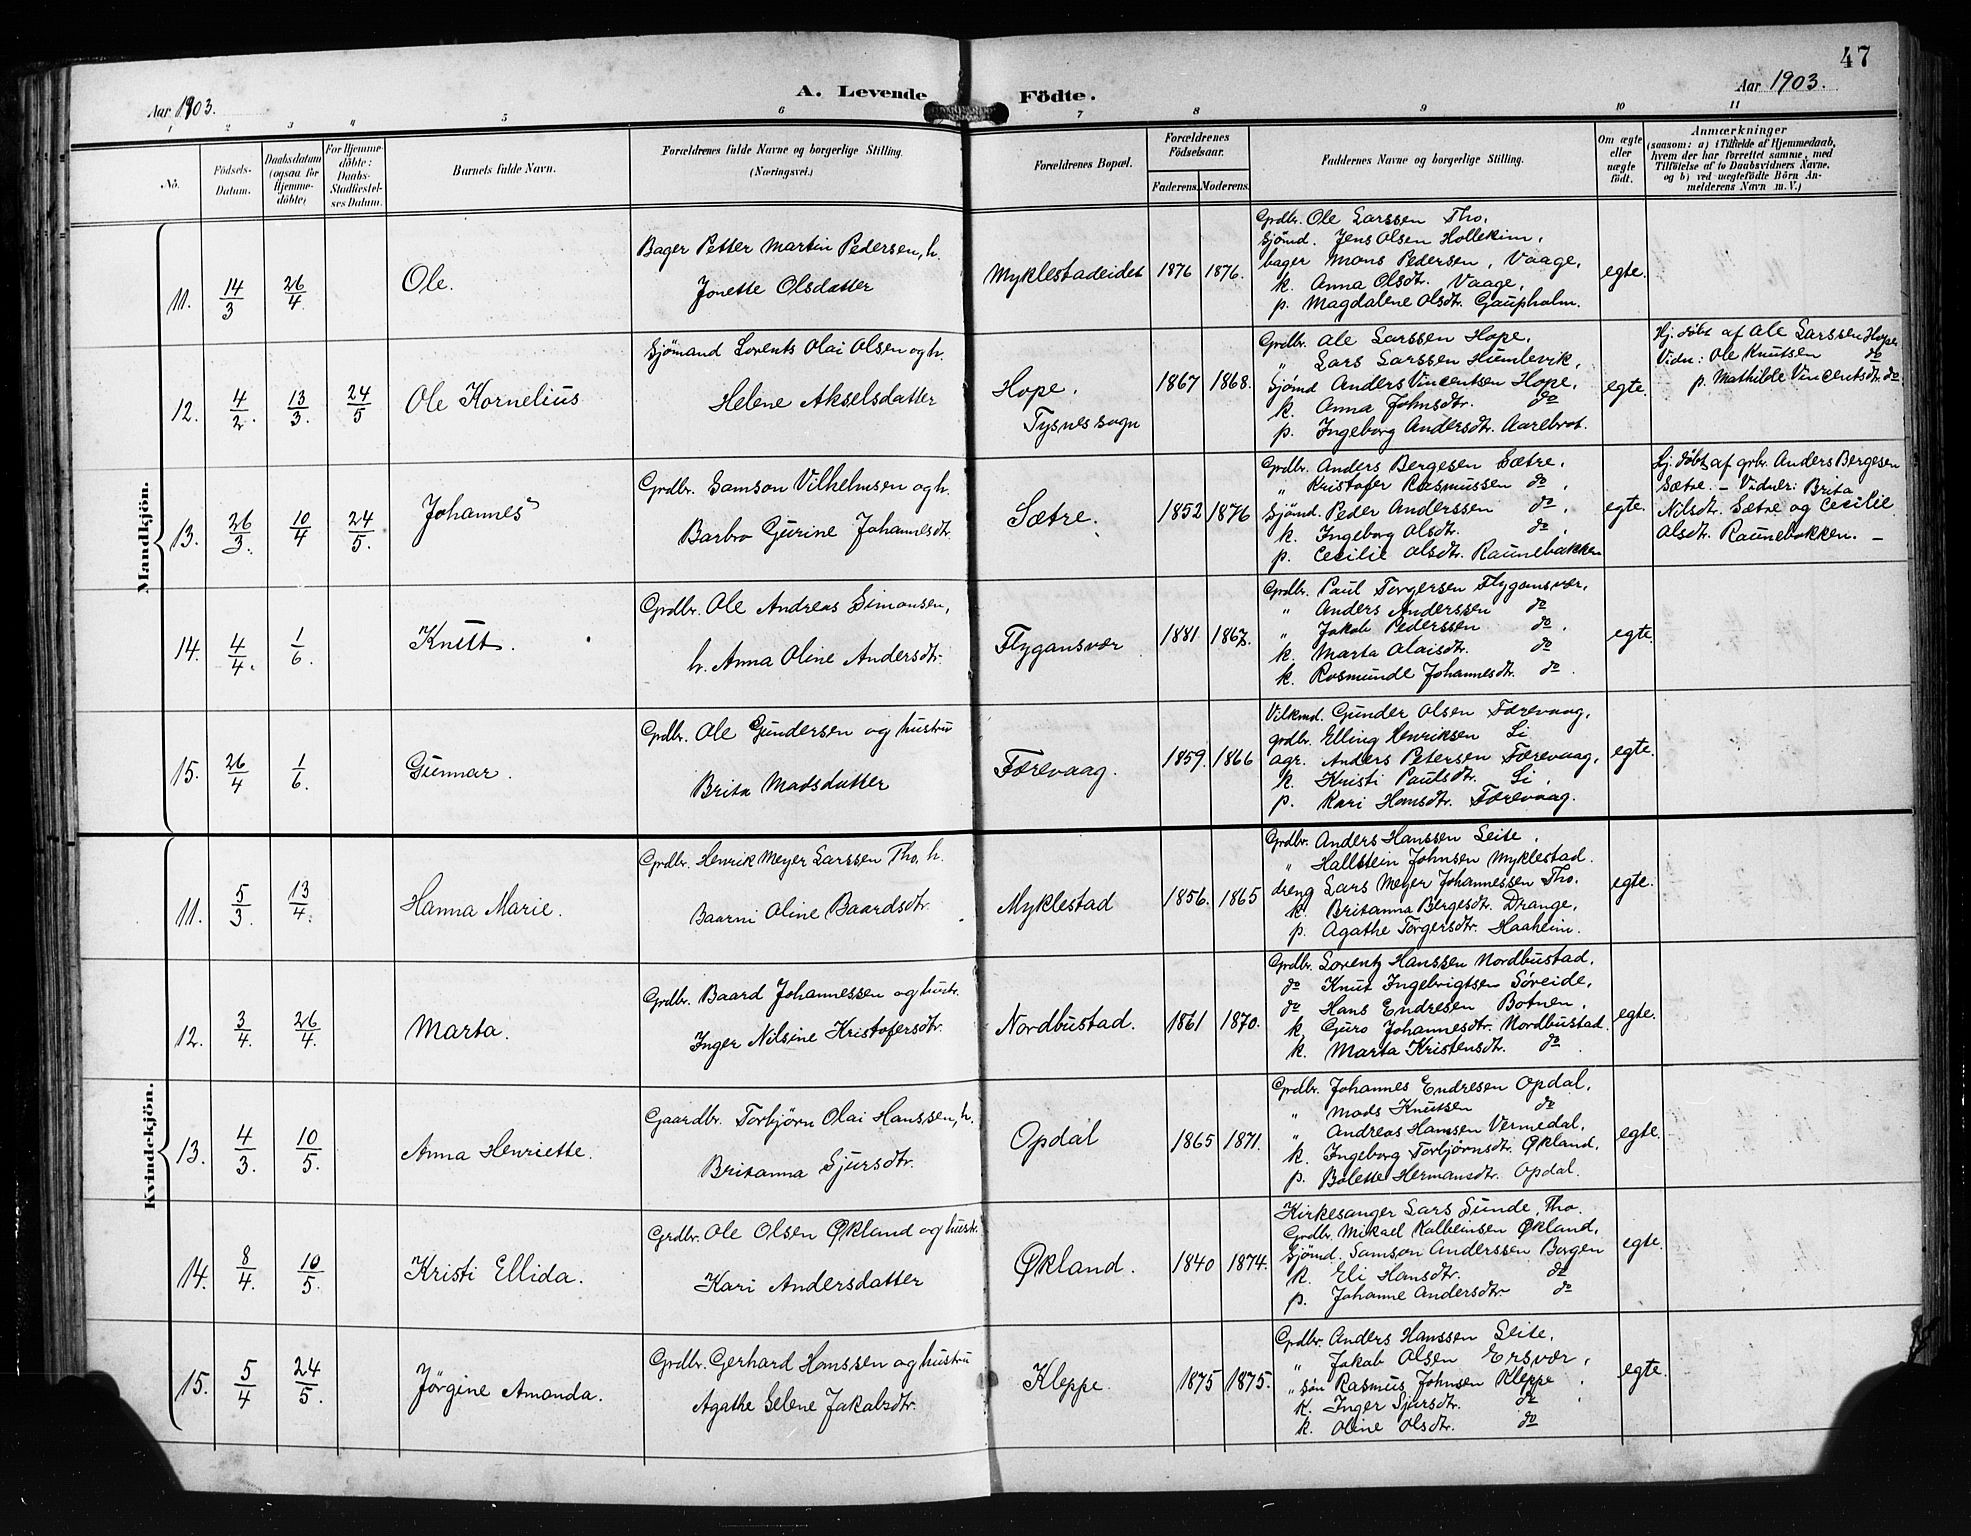 47
Aar 1903.
A. Levende Födte.
Aar 1903.
1 2 3 4 5 6 7 8 9 10 11
No. Födsels-Datum. Daabsdatum (ogsaa for Hjemmedöbte) For Hjemmedöbte: Daabs-Stadfæstelses Datum. Barnets fulde Navn. Forældrenes fulde Navne og borgerlige Stilling. (Næringsvei.) Forældrenes Bopæl. Forældrenes Födselsaar. Faderens. Moderens. Faddernes Navne og borgerlige Stilling. Om ægte eller uægte födt. Anmærkninger (saasom: a) i Tilfælde af Hjemmedaab, hvem der har forrettet samme, med Tilföielse af to Daabsvidners Navne, og b) ved uægtefödte Börn Anmelderens Navn m. V.)
Mandkjön.
11. 14/3 26/4 Ole.
Bager Petter Martin Pedersen, h.
Jonette Olsdatter
Myklestadeidet 1876 1876.
Grdbr. Ole Larssen Tho.
Sjømd. Jens Olsen Hollekim.
bager Mons Pedersen, Vaage,
k. Anna Olsdt. Vaage,
p. Magdalene Olsdtr. Gaupholm.
egte.
12. 4/2. 13/3. 24/5 Ole Kornelius
Sjömand Lorents Olai Olsen og h.
Helene Akselsdatter
Hope,
Tysnes sogn
1867 1868.
Grdbr. Ole Larssen Hope,
" Lars Larssen Humlevik,
Sjömd Anders Vincentsen Hope,
k. Anna Johnsdtr. do
p. Ingeborg Andersdtr. Aarebrot.
egte.
Hj. døbt af Ole Larssen Hope
Vidn: Ole Knutsen do
p. Mathilde Vincentsdtr. do.
13. 26/3. 10/4 24/5. Johannes
Grdbr. Samson Vilhelmsen og h.
Barbro Gurine Johannesdt.
Sætre. 1852 1876
Grdbr. Anders Bergesen Sætre.
" Kristofer Rasmussen do.
Sjömd. Peder Anderssen do.
k. Ingeborg Olsdt. do.
p. Cecilie Olsdtr. Raunebakken
egte.
Hj. døbt af grbr. Anders Bergesen
Sætre. – Vidner: Brita
Nilsdt. Sætre og Cecilie
Olsdtr. Raunebakken. –
14. 4/4. 1/6. Knut.
Grdbr. Ole Andreas Simonsen,
h. Anna Oline Andersdtr.
Flygansvær 1881 1867.
Grdbr. Paul Torgersen Flygansvær,
" Anders Anderssen do
" Jakob Pederssen do.
k. Marta Olaisdt. do
k. Rasmunde Johannesdtr. do.
egte.
15. 26/4 1/6. Gunnar.
Grdbr. Ole Gundersen og hustru
Brita Madsdatter
Færevaag. 1859. 1866
Vilkmd. Gunder Olsen Færevaag,
grdbr. Elling Henriksen Li
agr. Anders Petersen Færevaag,
k. Kristi Paulsdt. Li.
p. Kari Hansdtr. Færevaag.
egte.
Kvindekjön.
11. 5/3. 13/4. Hanna Marie.
Grdbr. Henrik Meyer Larssen Tho, h.
Baarni Oline Baardsdtr.
Myklestad 1856. 1865
Grdbr. Anders Hanssen Leite,
" Hallstein Johnsen Myklestad.
dreng Lars Meyer Johannessen Tho.
k. Britanna Bergesdt. Drange,
p. Agathe Torgersdtr. Haaheim.
egte.
12. 3/4. 26/4. Marta.
Grdbr. Baard Johannessen og hustr.
Inger Nilsine Kristofersdtr.
Nordbustad. 1861 1870.
Grdbr. Lorentz Hanssen Nordbustad,
do Knut Ingebrigtsen Söreide,
do Hans Endresen Botnen,
k. Guro Johannesdtr. Nordbustad.
k. Marta Kristensdtr. do.
egte.
13. 4/3. 10/5. Anna Henriette.
Gaardbr. Torbjörn Olai Hanssen, h.
Britanna Sjursdtr.
Opdal 1865 1871.
Grdbr. Johannes Endresen Opdal,
" Mads Knutsen do
" Andreas Hansen Vermedal,
k. Ingeborg Torbjörnsdt. Økland,
p. Bolette Hermansdtr. Opdal.
egte.
14. 8/4. 10/5. Kristi Ellida.
Grdbr. Ole Olsen Økland og hustr.
Kari Andersdatter
Økland. 1840 1874.
Kirkesanger Lars Sunde, Tho.
Grdbr. Mikael Kalbeinsen Økland,
Sjömd. Samson Anderssen Bergen
k. Eli Hansdtr. do
p. Johanne Andersdtr. do
egte.
15. 5/4 24/5. Jörgine Amanda.
Grdbr. Gerhard Hanssen og hustru
Agathe Selene Jakobsdtr.
Kleppe. 1875 1875.
Grdbr. Anders Hanssen Leite,
" Jakob Olsen Ersvær,
" sön Rasmus Johnsen Kleppe.
k. Inger Sjursdtr. do.
k. Oline Olsdtr. do
egte.